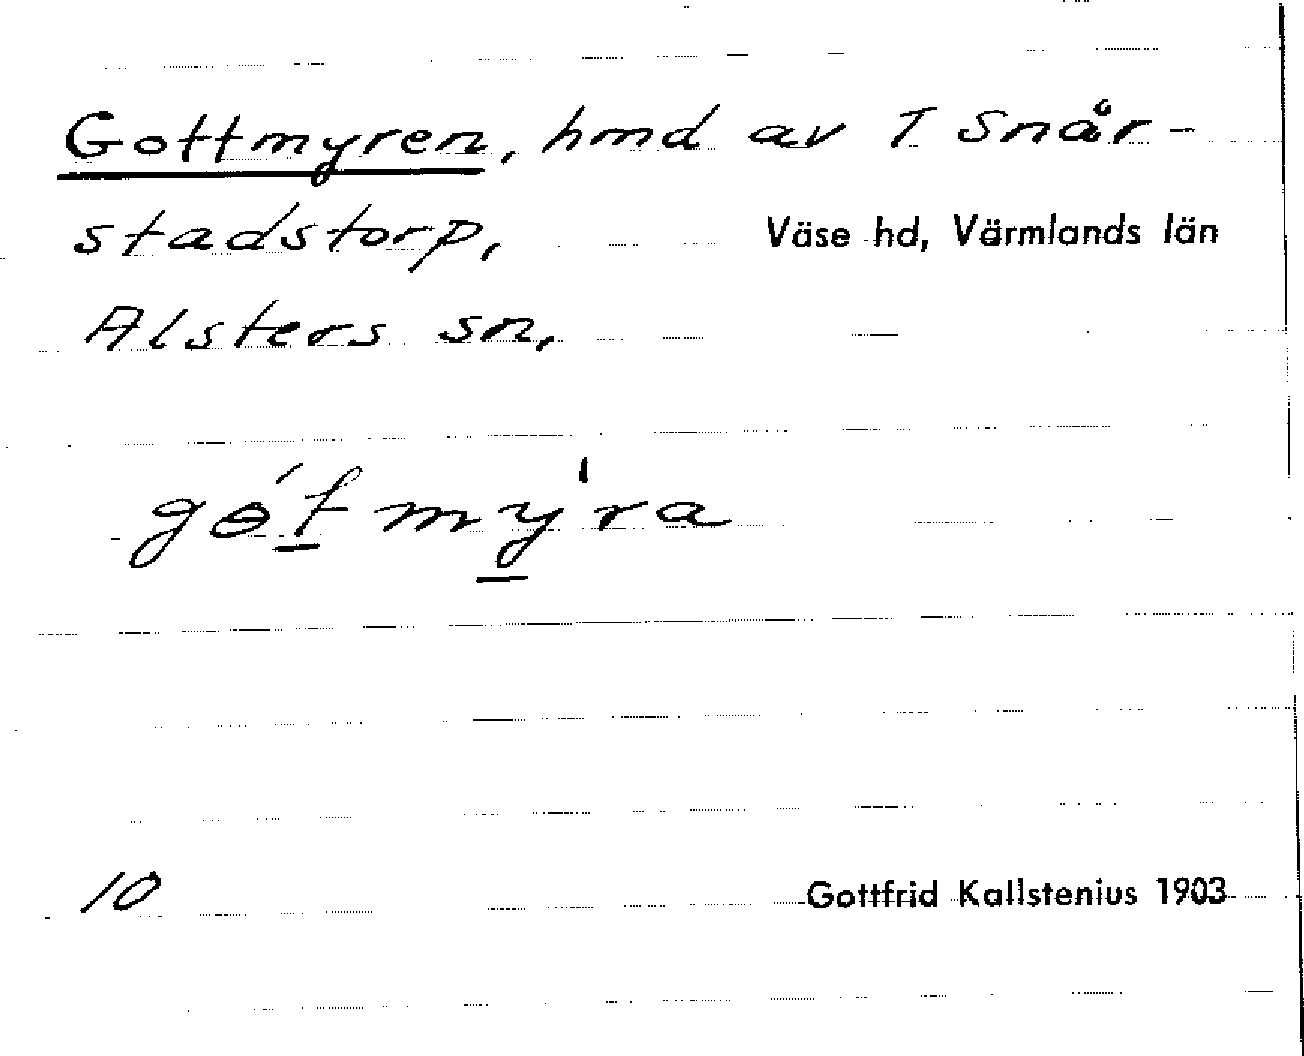 Gottmyren, hmd av 1 Snår-
stadstorp, Väse hd, Värmlands län
Alsters sn,
gɵ́tmýra
10 Gottfrid Kallstenius 1903